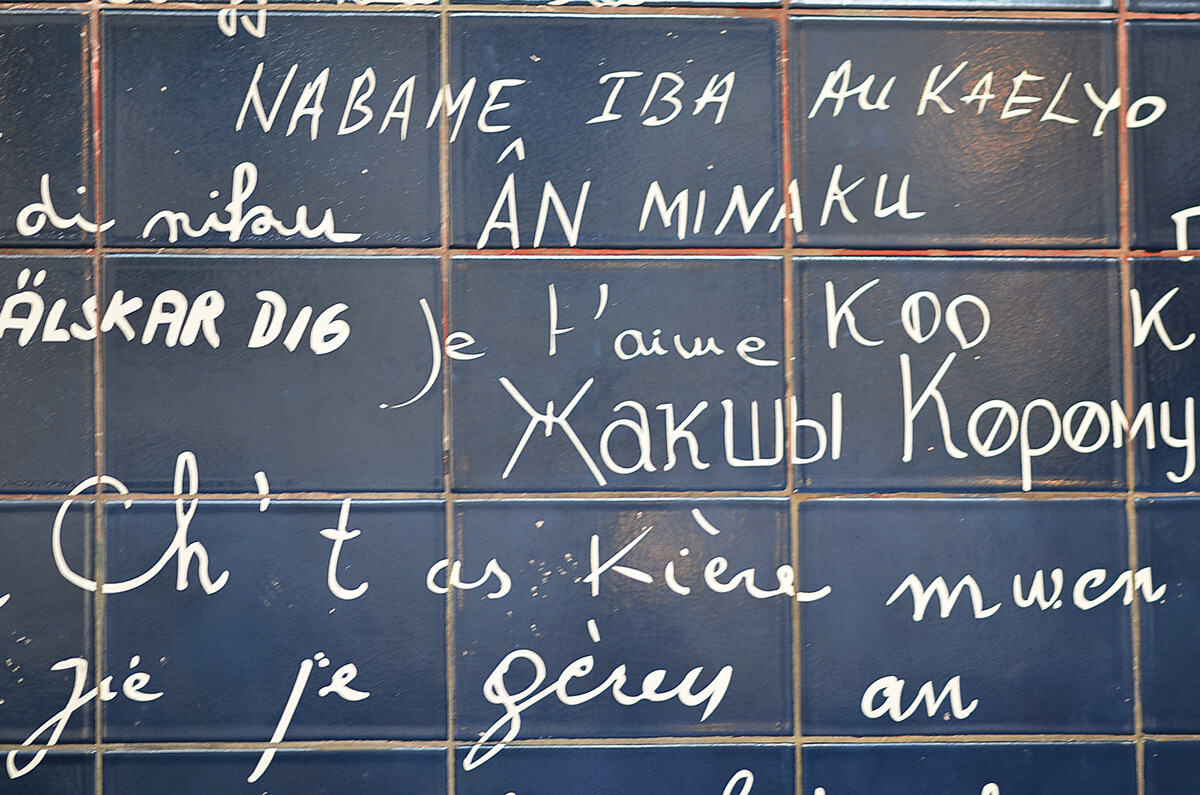 NABAME IBA AU KAELYO
di niku ÂN MINAKU
ÄLSKAR DIG je t'aime KOO K
Жакшы Көрөму
Ch't as Kière mwen
jié je gèrey an